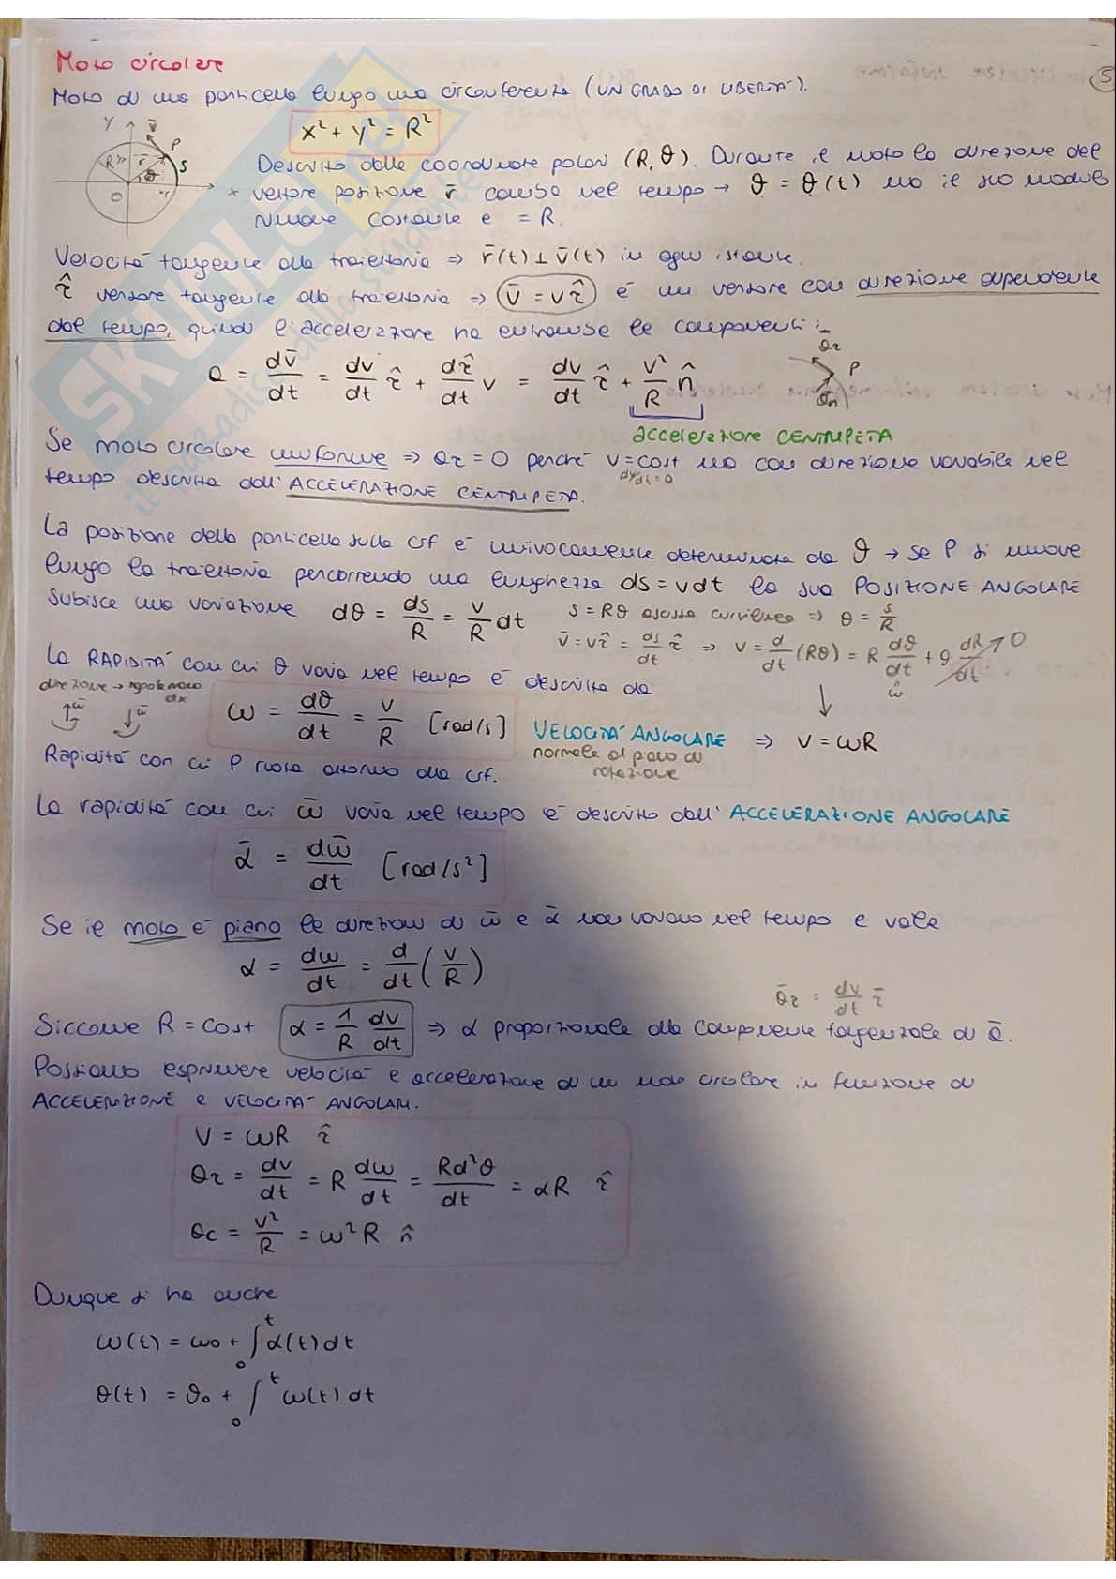 Moto circolare
5
Moto di una particella lungo una circonferenza (UN GRADO DI LIBERTÀ).
x² + y² = R²
y v̄ P S R r̄ θ O x
Descritto dalle coordinate polari (R, ϑ). Durante il moto la direzione del
vettore posizione r̄ cambia nel tempo → ϑ = ϑ(t) ma il suo modulo
rimane costante e = R.
Velocità tangente alla traiettoria ⇒ r̄(t) ⊥ v̄(t) in ogni istante.
τ̂ versore tangente alla traiettoria ⇒ v̄ = vτ̂ è un versore con direzione dipendente
dal tempo, quindi l'accelerazione ha entrambe le componenti:
a = dv̄/dt = dv/dt τ̂ + dτ̂/dt v = dv/dt τ̂ + v²/R n̂
aτ P an
accelerazione CENTRIPETA
Se moto circolare uniforme ⇒ aτ = 0 perché v = cost ma con direzione variabile nel
dv/dt = 0
tempo descritta dall'ACCELERAZIONE CENTRIPETA.
La posizione della particella sulla crf è univocamente determinata da ϑ → se P si muove
lungo la traiettoria percorrendo una lunghezza ds = vdt la sua POSIZIONE ANGOLARE
subisce una variazione dθ = ds/R = v/R dt
s = Rθ ascissa curvilinea ⇒ θ = s/R
v̄ = vτ̂ = ds/dt τ̂ ⇒ v = d/dt (Rθ) = R dϑ/dt + θ dR/dt → 0
ω
La RAPIDITÀ con cui ϑ varia nel tempo è descritta da
direzione → regola mano dx
ω̄ ω̄
ω = dϑ/dt = v/R [rad/s] VELOCITÀ ANGOLARE ⇒ v = ωR
normale al piano di
rotazione
Rapidità con cui P ruota attorno alla crf.
La rapidità con cui ω̄ varia nel tempo è descritta dall'ACCELERAZIONE ANGOLARE
ᾱ = dω̄/dt [rad/s²]
Se il moto è piano le direzioni di ω̄ e ᾱ non variano nel tempo e vale
α = dω/dt = d/dt (v/R)
āτ = dv/dt τ̄
Siccome R = cost α = 1/R dv/dt ⇒ α proporzionale alla componente tangenziale di ā.
Possiamo esprimere velocità e accelerazione di un moto circolare in funzione di
ACCELERAZIONE e VELOCITÀ ANGOLARI.
V = ωR τ̂
aτ = dv/dt = R dω/dt = Rd²θ/dt = αR τ̂
ac = v²/R = ω²R n̂
Dunque si ha anche
ω(t) = ω₀ + ∫₀ᵗ α(t)dt
θ(t) = ϑ₀ + ∫₀ᵗ ω(t)dt